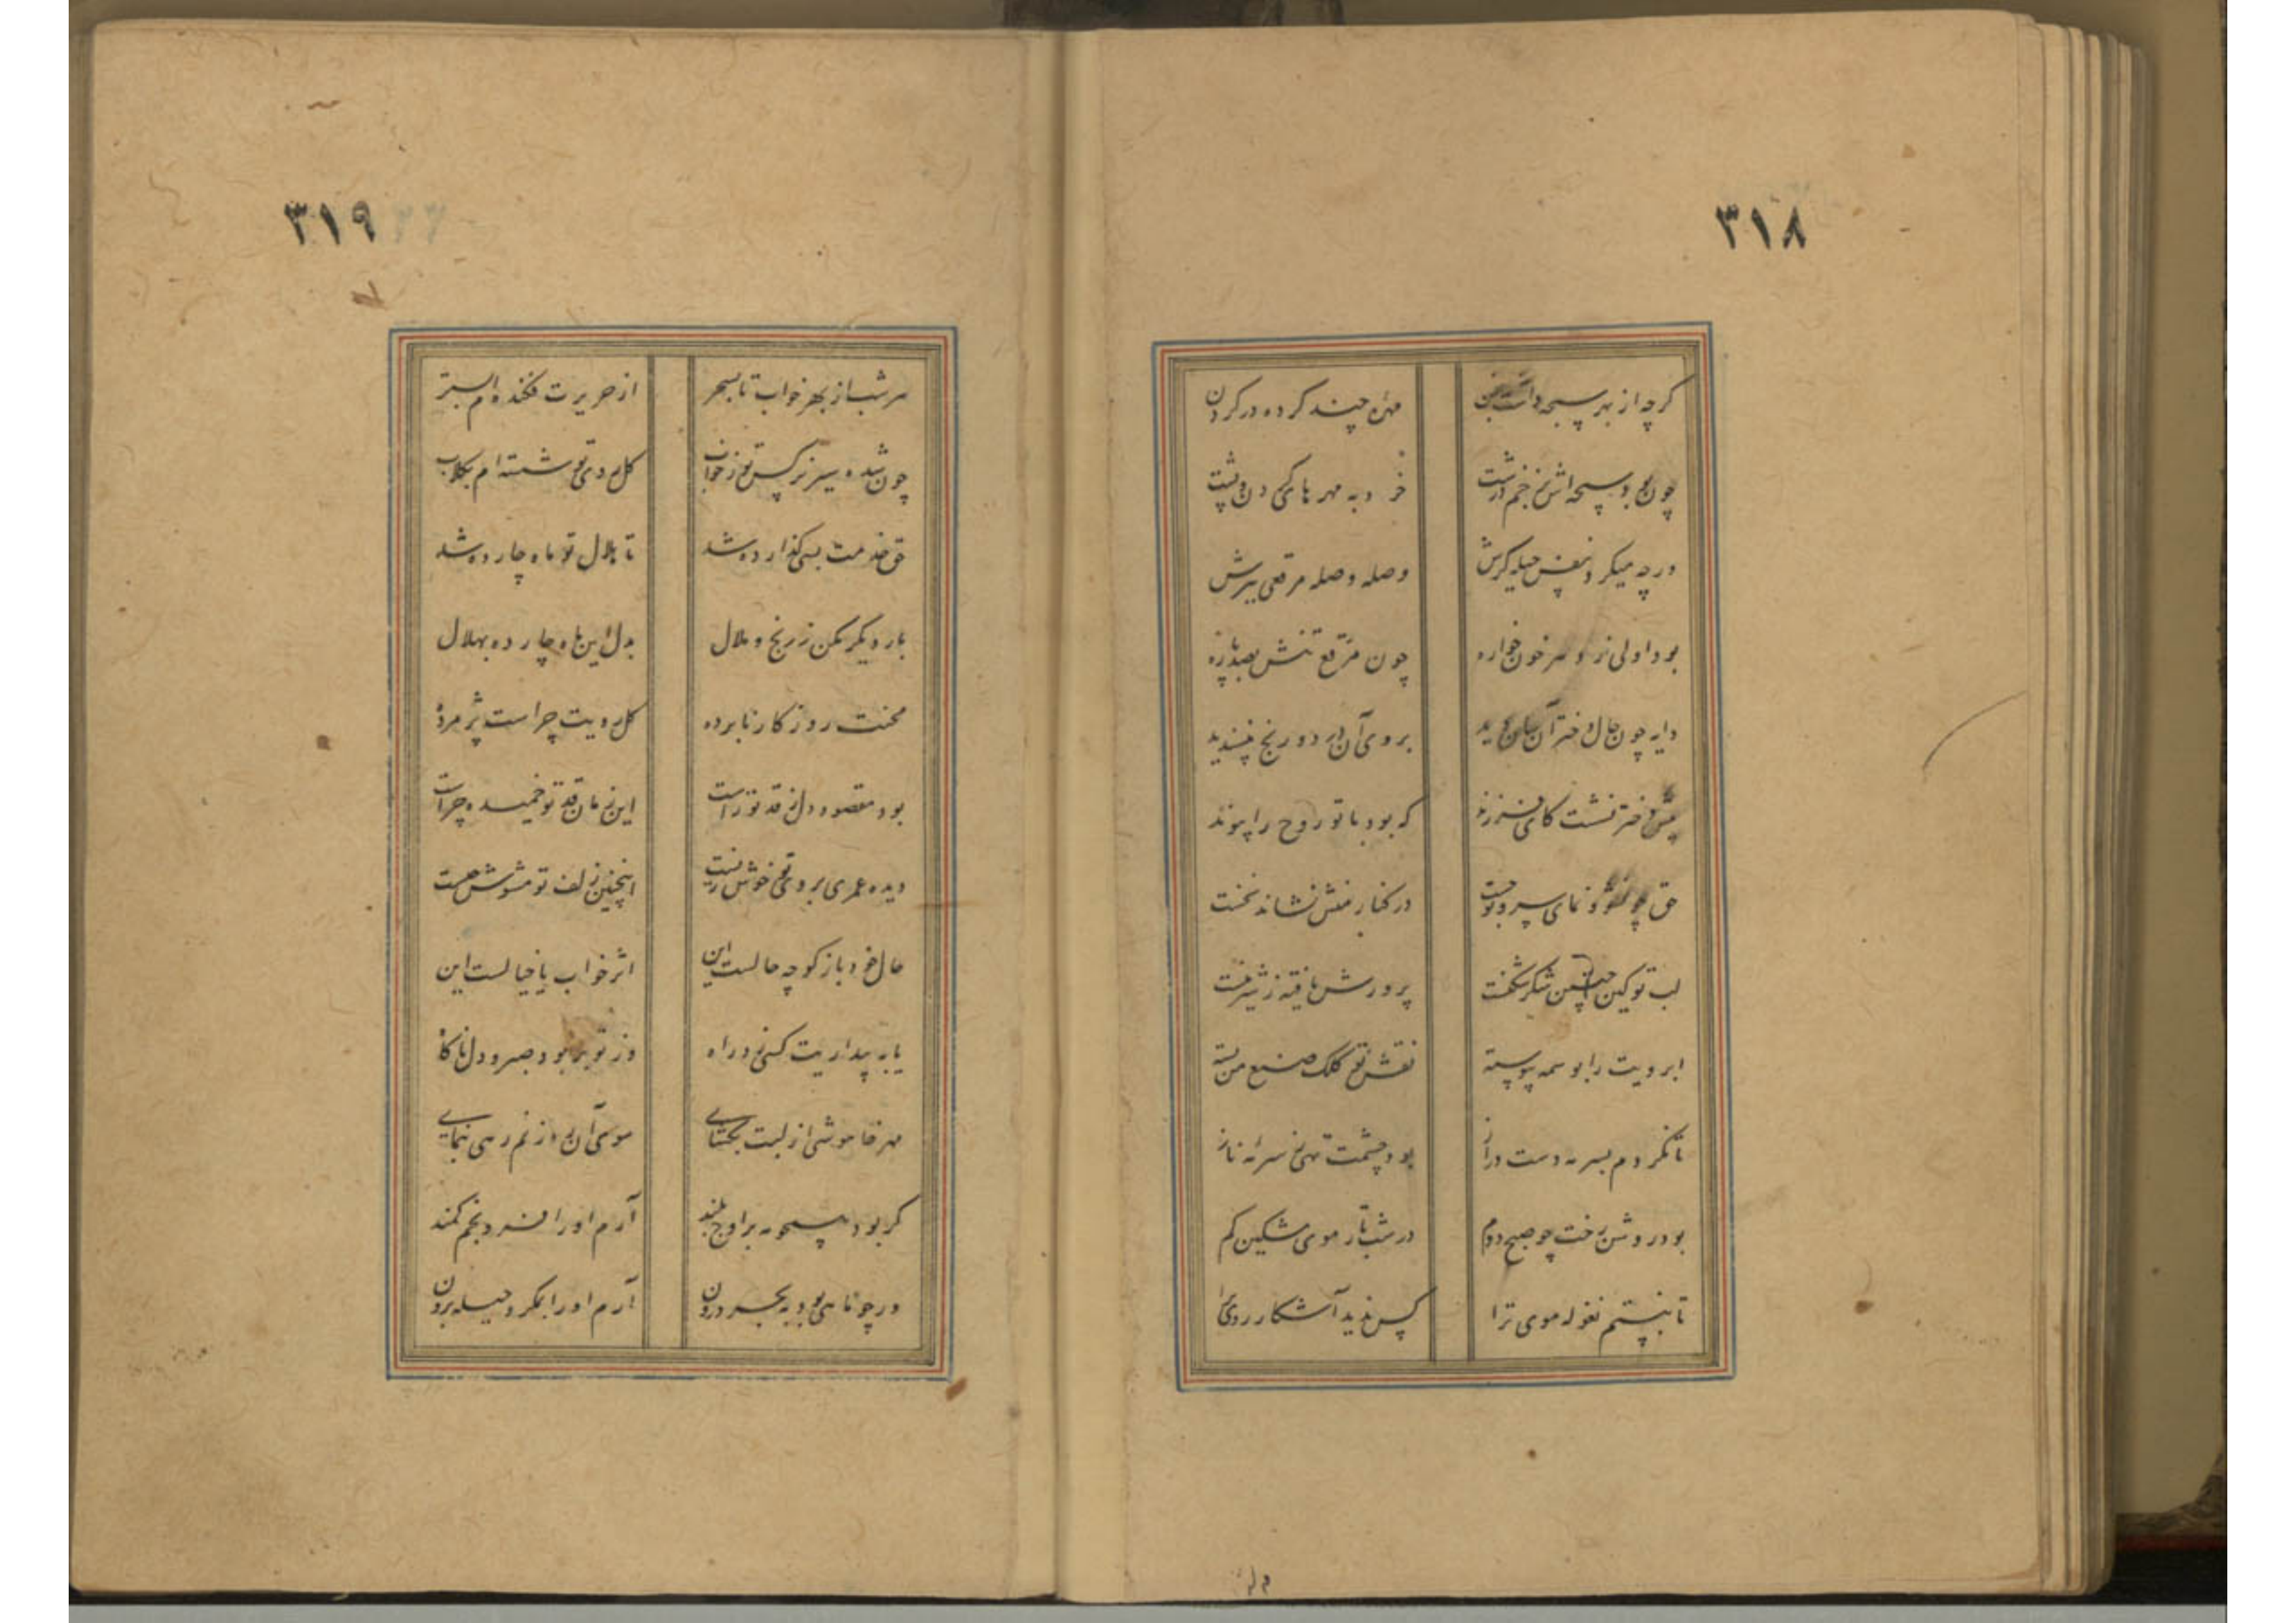 ٣١٨
گرچه از بهر سبحه داشتن
مهرهٔ چند کرده در گردن
چون بود سبحه اش نه خم درشت
خرد به مهر های گردن و پشت
ورچه میکرد نفس حیله گرش
وصله وصله مرقعی ببرش
بود اولی زد و سر خون خواره
چون مرقع تنش بصد پاره
دایه چون حال دختر آن سان دید
بروی آن درد و رنج نپسندید
پیش دختر نشست کای فرزند
که بود با تو روح را پیوند
حق چو نشو و نمای سرو تو جست
در کنار منش نشاند نخست
لب تو کین چنین شکر شکفت
پرورش یافته ز شیر منست
ابرویت را بوسمه پیوسته
نقش تو کلک صنع من بسته
تا نکردم بسرمه دست دراز
بود چشمت تهی ز سرمهٔ ناز
بود روشن رخت چو صبح دوم
در شب تار موی مشکین گم
تا نبستم نغوله موی ترا
کس ندید آشکار روی ترا
٣١٩
هر شب از بهر خواب تا بسحر
از حریرت فکنده ام بستر
چون شده سیر نرگس تو ز خواب
گل روی تو شسته ام بگلاب
حق خدمت بسی گذارده شد
تا هلال تو ماه چارده شد
بار دیگر مکن ز رنج و ملال
بدل این ماه چارده بهلال
محنت روزگار نابرده
گل رویت چراست پژمرده
بود مقصود دل ز قد تو راست
این زمان قد تو خمیده چراست
دیده عمری بروی تو خوش زیست
اینچنین زلف تو مشوش چیست
حال خود باز گو چه حالست این
اثر خواب یا خیالست این
یا به بیداریت کسی در راه
وز تو بربود صبر و دل ناگاه
مهر خاموشی از لبت بگشای
سوی آن رهزنم رهی بنمای
گر بود همچو مه بر اوج بلند
آرم او را فرود بخم کمند
ور چو ماهی بود به بحر درون
آرم او را بمکر و حیله برون